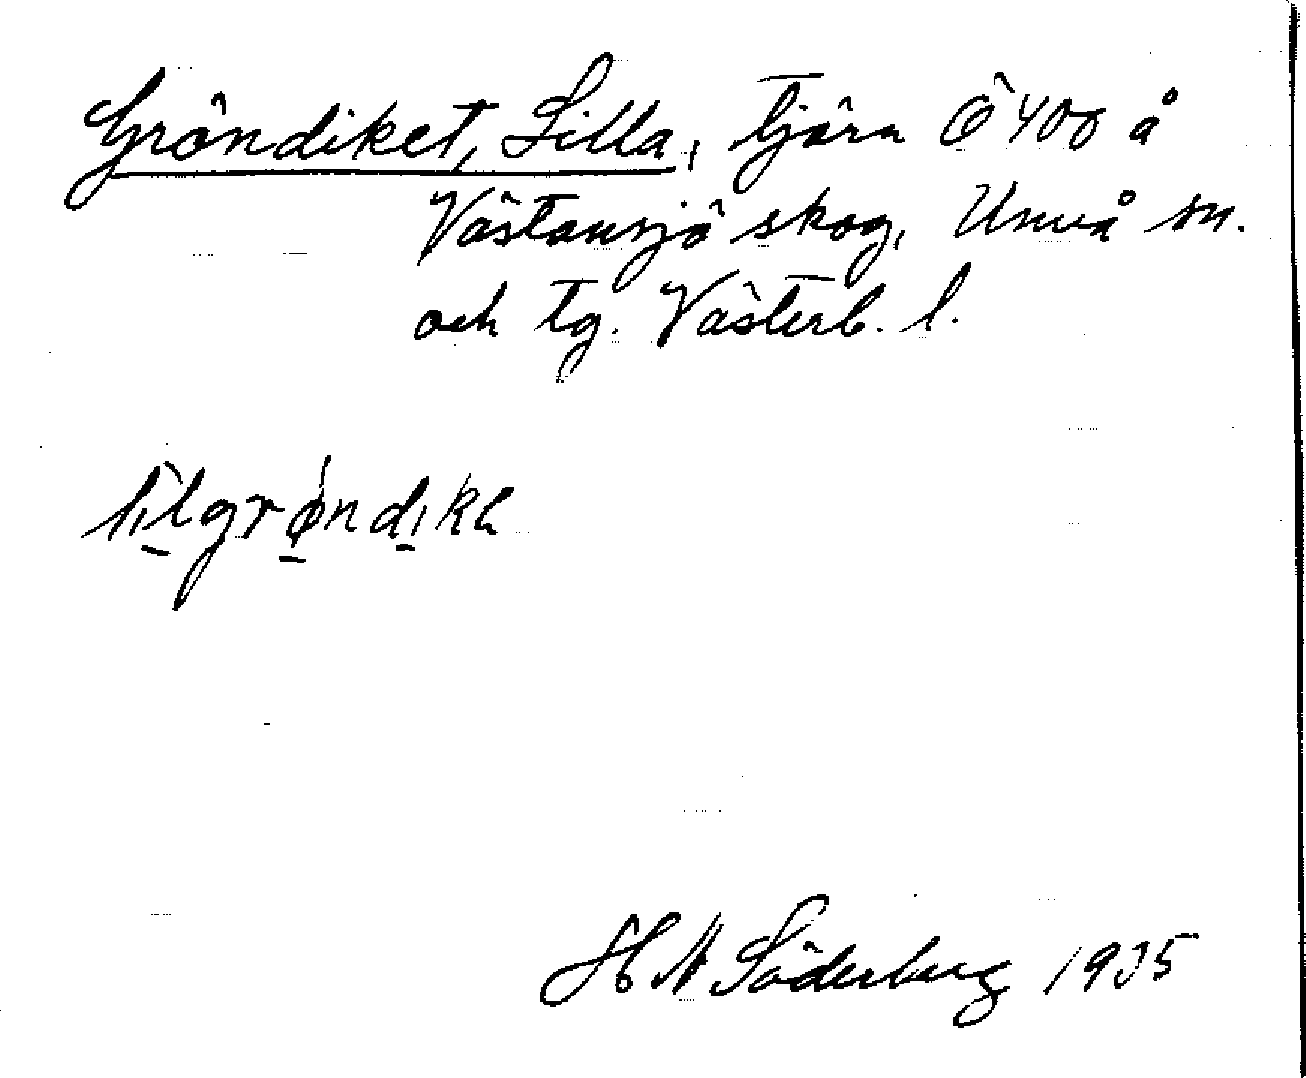 Gröndiket, Lilla, tjärn Ö 400 å
Västansjö skog, Umeå sn.
och tg. Västerb. l.
lilgrøndikə
H N Söderberg 1935